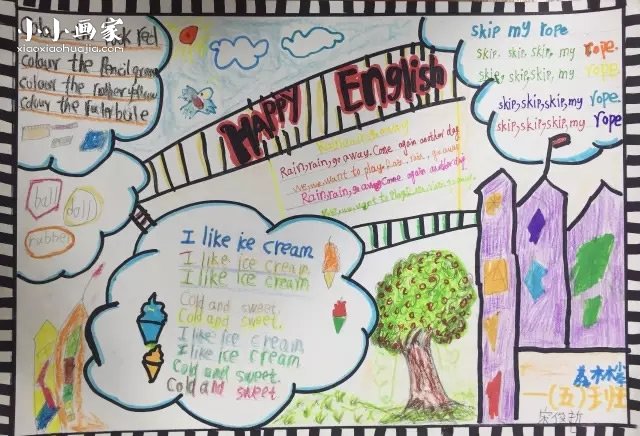 小小画家
xiaoxiaohuajia.com
colour the pencil green
colour the ruber
colour the ruler bule
ball
doll
rubber
HAPPY English
Rain, rain, go away. Come again another day
we want to play. Rain, rain, go away
Rain, rain, go away. Come again another day
skip my rope
skip, skip, skip, my rope.
skip, skip, skip, my rope.
skip, skip, skip, my rope.
skip, skip, skip, my rope.
I like ice cream
I like ice cream
I like ice cream
Cold and sweet.
Cold and sweet.
I like ice cream
I like ice cream
Cold and sweet
Cold and sweet
一(五)班
宋俊哲